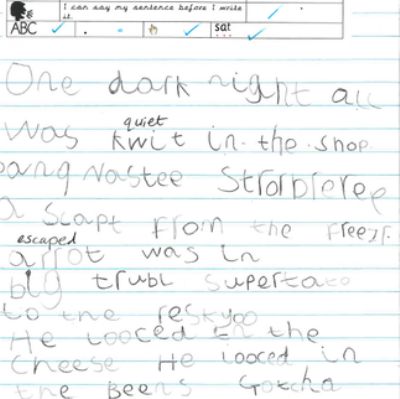 I can say my sentence before I write it.
ABC . sat
One dark night all
quiet
was kwit in the shop
bang Nastee Strorpleree
a scapt from the freezr.
escaped
a rrot was in
big trubl supertato
to the reskyoo
He looced in the
cheese He looced in
the Beens Gotcha